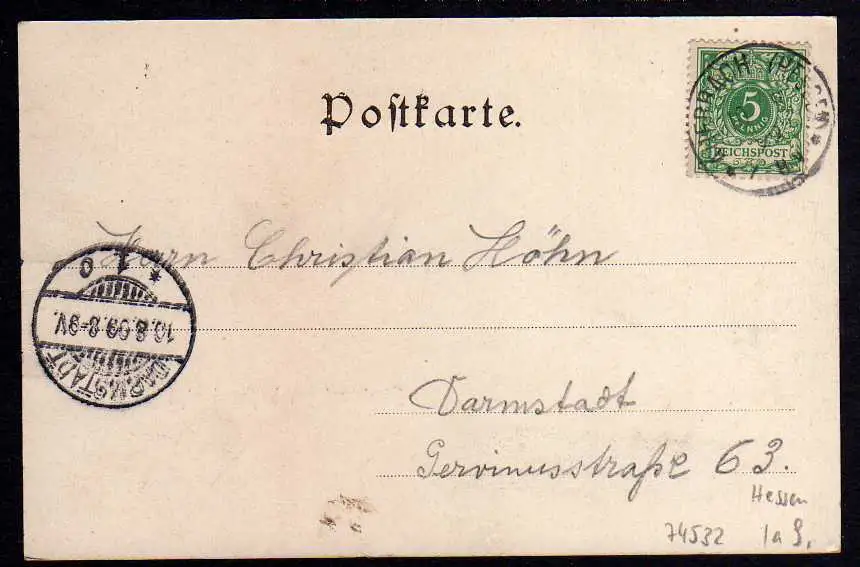 Postkarte.
AUERBACH (HESSEN)
5
PFENNIG
REICHSPOST
Herrn Christian Höhn
DARMSTADT
* 1. o
10.8.99.8-9V.
Darmstadt
Gervinusstraße 63.
Hessen
74532 Ia